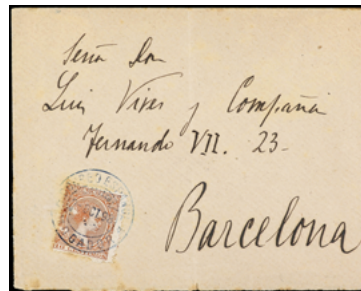 Señor Don
Luis Vives y Compañia
Fernando VII. 23-
Barcelona